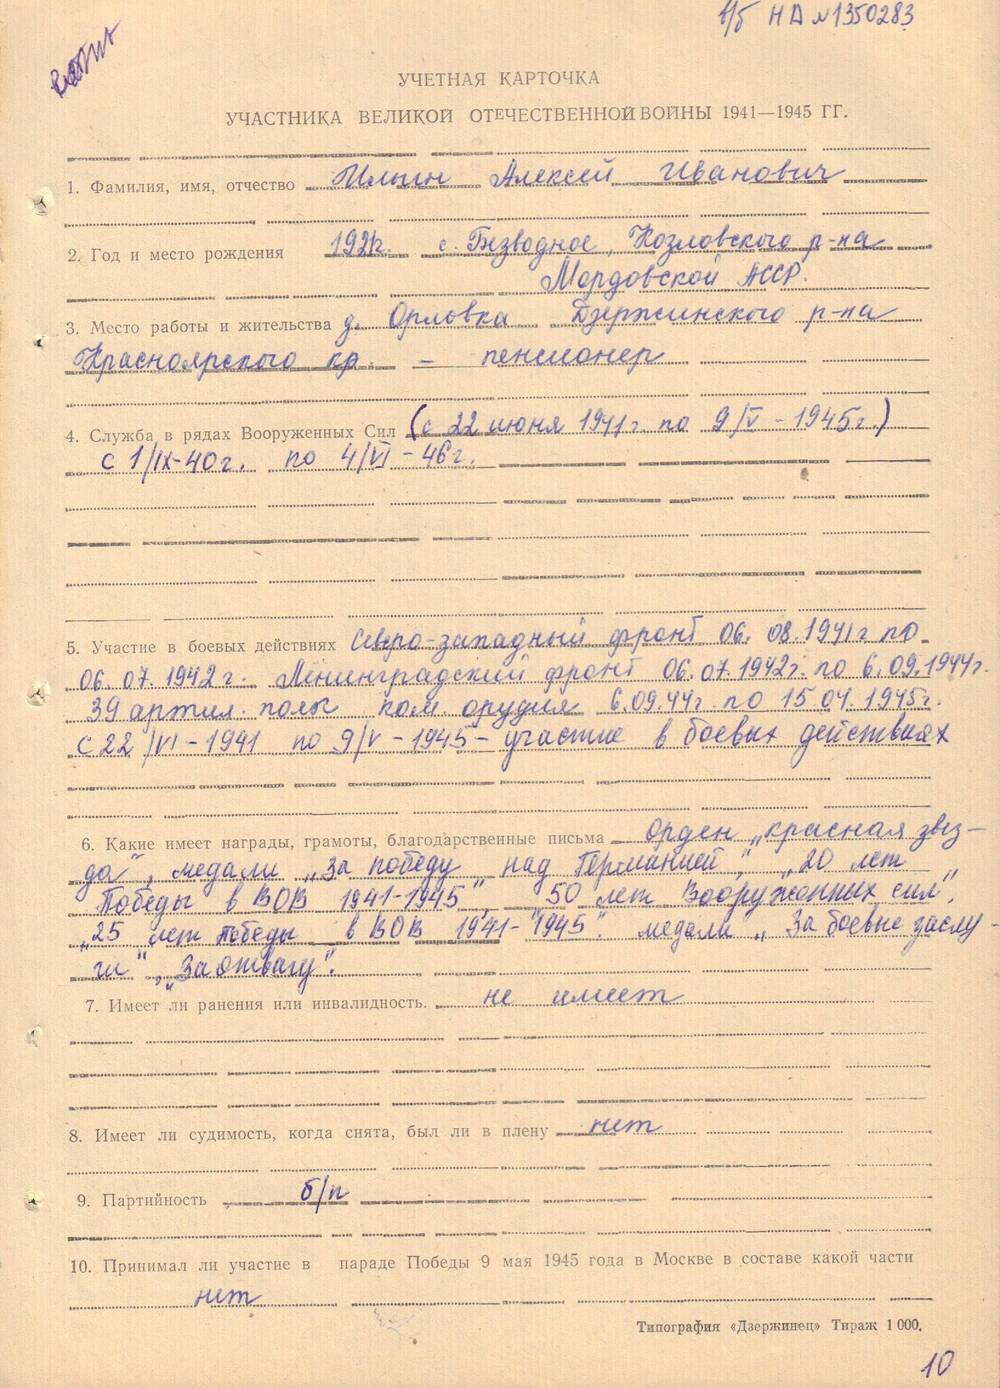 в/б НД № 1350283
УЧЕТНАЯ КАРТОЧКА
УЧАСТНИКА ВЕЛИКОЙ ОТЕЧЕСТВЕННОЙ ВОЙНЫ 1941—1945 ГГ.
1. Фамилия, имя, отчество Ильин Алексей Иванович
2. Год и место рождения 1921г. с. Безводное, Козловского р-на
Мордовской АССР.
3. Место работы и жительства д. Орловка Дзержинского р-на
Красноярского кр. — пенсионер
4. Служба в рядах Вооруженных Сил (с 22 июня 1941г. по 9/V - 1945г.)
с 1/IX-40г. по 4/VI - 46г.
5. Участие в боевых действиях Северо-западный фронт 06. 08. 1941г по
06. 07. 1942г. Ленинградский фронт 06.07.1942г. по 6.09.1944г.
39 артил. полк пом. орудия 6.09.44г. по 15 04. 1945г.
с 22/VI - 1941 по 9/V - 1945 - участие в боевых действиях
6. Какие имеет награды, грамоты, благодарственные письма орден „красная звез-
да", медали „За победу над Германией", „20 лет
Победы в ВОВ 1941-1945", 50 лет Вооруженных сил",
„25 лет победы в ВОВ 1941-1945". медали „За боевые заслу-
ги", „За отвагу".
7. Имеет ли ранения или инвалидность. не имеет
8. Имеет ли судимость, когда снята, был ли в плену нет
9. Партийность б/п
10. Принимал ли участие в параде Победы 9 мая 1945 года в Москве в составе какой части
нет
Типография «Дзержинец» Тираж 1 000.
10